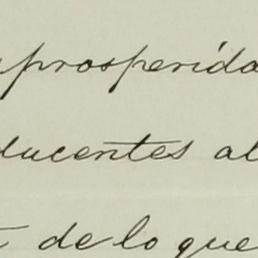 prosperida
ducentes al
de lo que